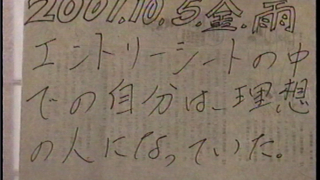 2001.10.5.金.雨
エントリーシートの中
での自分は、理想
の人になっていた。